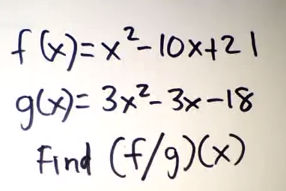 f(x)=x²-10x+21
g(x)= 3x²-3x-18
Find (f/g)(x)